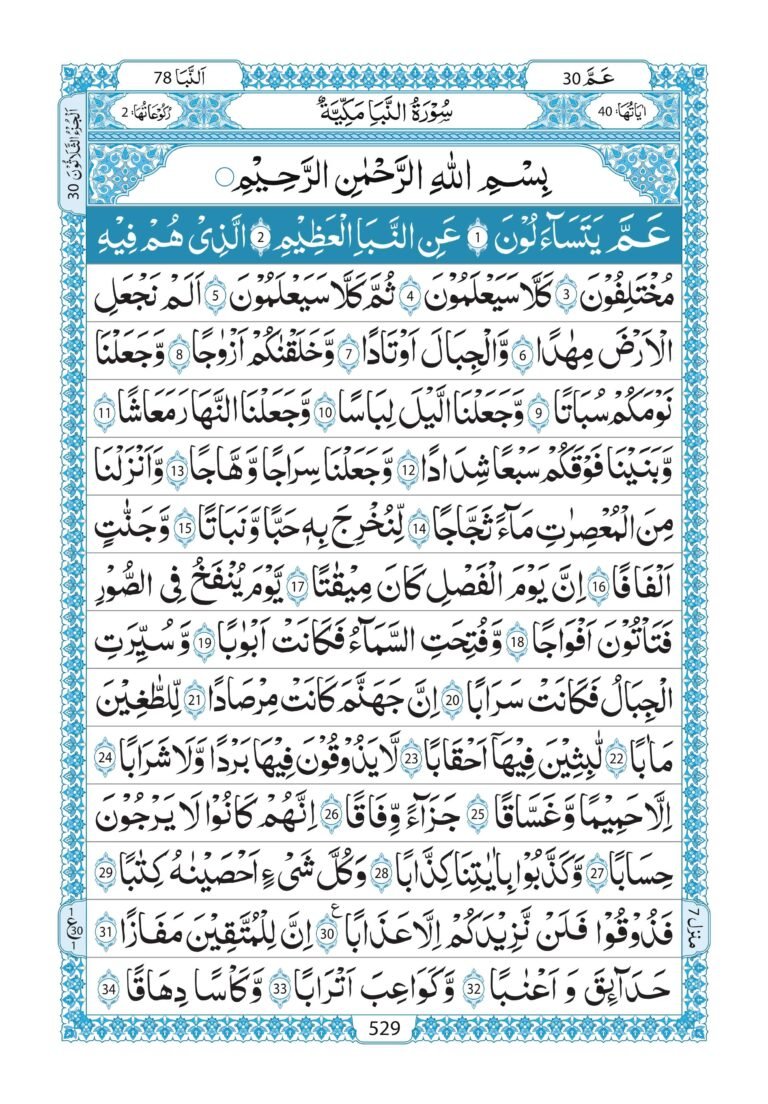 اَلنَّبَا 78
عَمَّ 30
اٰيَاتُهَا: 40
سُوْرَةُ النَّبَاِ مَكِّيَّةٌ
رُكُوْعَاتُهَا: 2
اَلْجُزْءُ الثَّلَاثُوْنَ 30
بِسْمِ اللّٰهِ الرَّحْمٰنِ الرَّحِيْمِ
عَمَّ يَتَسَآءَلُوْنَ 1 عَنِ النَّبَاِ الْعَظِيْمِ 2 الَّذِيْ هُمْ فِيْهِ
مُخْتَلِفُوْنَ 3 كَلَّا سَيَعْلَمُوْنَ 4 ثُمَّ كَلَّا سَيَعْلَمُوْنَ 5 اَلَمْ نَجْعَلِ
الْاَرْضَ مِهٰدًا 6 وَّالْجِبَالَ اَوْتَادًا 7 وَّخَلَقْنٰكُمْ اَزْوٰجًا 8 وَّجَعَلْنَا
نَوْمَكُمْ سُبَاتًا 9 وَّجَعَلْنَا الَّيْلَ لِبَاسًا 10 وَّجَعَلْنَا النَّهَارَ مَعَاشًا 11
وَّبَنَيْنَا فَوْقَكُمْ سَبْعًا شِدَادًا 12 وَّجَعَلْنَا سِرَاجًا وَّهَّاجًا 13 وَّاَنْزَلْنَا
مِنَ الْمُعْصِرٰتِ مَآءً ثَجَّاجًا 14 لِّنُخْرِجَ بِهٖ حَبًّا وَّنَبَاتًا 15 وَّجَنّٰتٍ
اَلْفَافًا 16 اِنَّ يَوْمَ الْفَصْلِ كَانَ مِيْقٰتًا 17 يَّوْمَ يُنْفَخُ فِى الصُّوْرِ
فَتَاْتُوْنَ اَفْوَاجًا 18 وَّفُتِحَتِ السَّمَآءُ فَكَانَتْ اَبْوٰبًا 19 وَّسُيِّرَتِ
الْجِبَالُ فَكَانَتْ سَرَابًا 20 اِنَّ جَهَنَّمَ كَانَتْ مِرْصَادًا 21 لِّلطّٰغِيْنَ
مَاٰبًا 22 لّٰبِثِيْنَ فِيْهَآ اَحْقَابًا 23 لَا يَذُوْقُوْنَ فِيْهَا بَرْدًا وَّلَا شَرَابًا 24
اِلَّا حَمِيْمًا وَّغَسَّاقًا 25 جَزَآءً وِّفَاقًا 26 اِنَّهُمْ كَانُوْا لَا يَرْجُوْنَ
حِسَابًا 27 وَّكَذَّبُوْا بِاٰيٰتِنَا كِذَّابًا 28 وَكُلَّ شَيْءٍ اَحْصَيْنٰهُ كِتٰبًا 29
فَذُوْقُوْا فَلَنْ نَّزِيْدَكُمْ اِلَّا عَذَابًا 30 ع اِنَّ لِلْمُتَّقِيْنَ مَفَازًا 31
حَدَآئِقَ وَاَعْنٰبًا 32 وَّكَوَاعِبَ اَتْرَابًا 33 وَّكَاْسًا دِهَاقًا 34
منزل 7
529